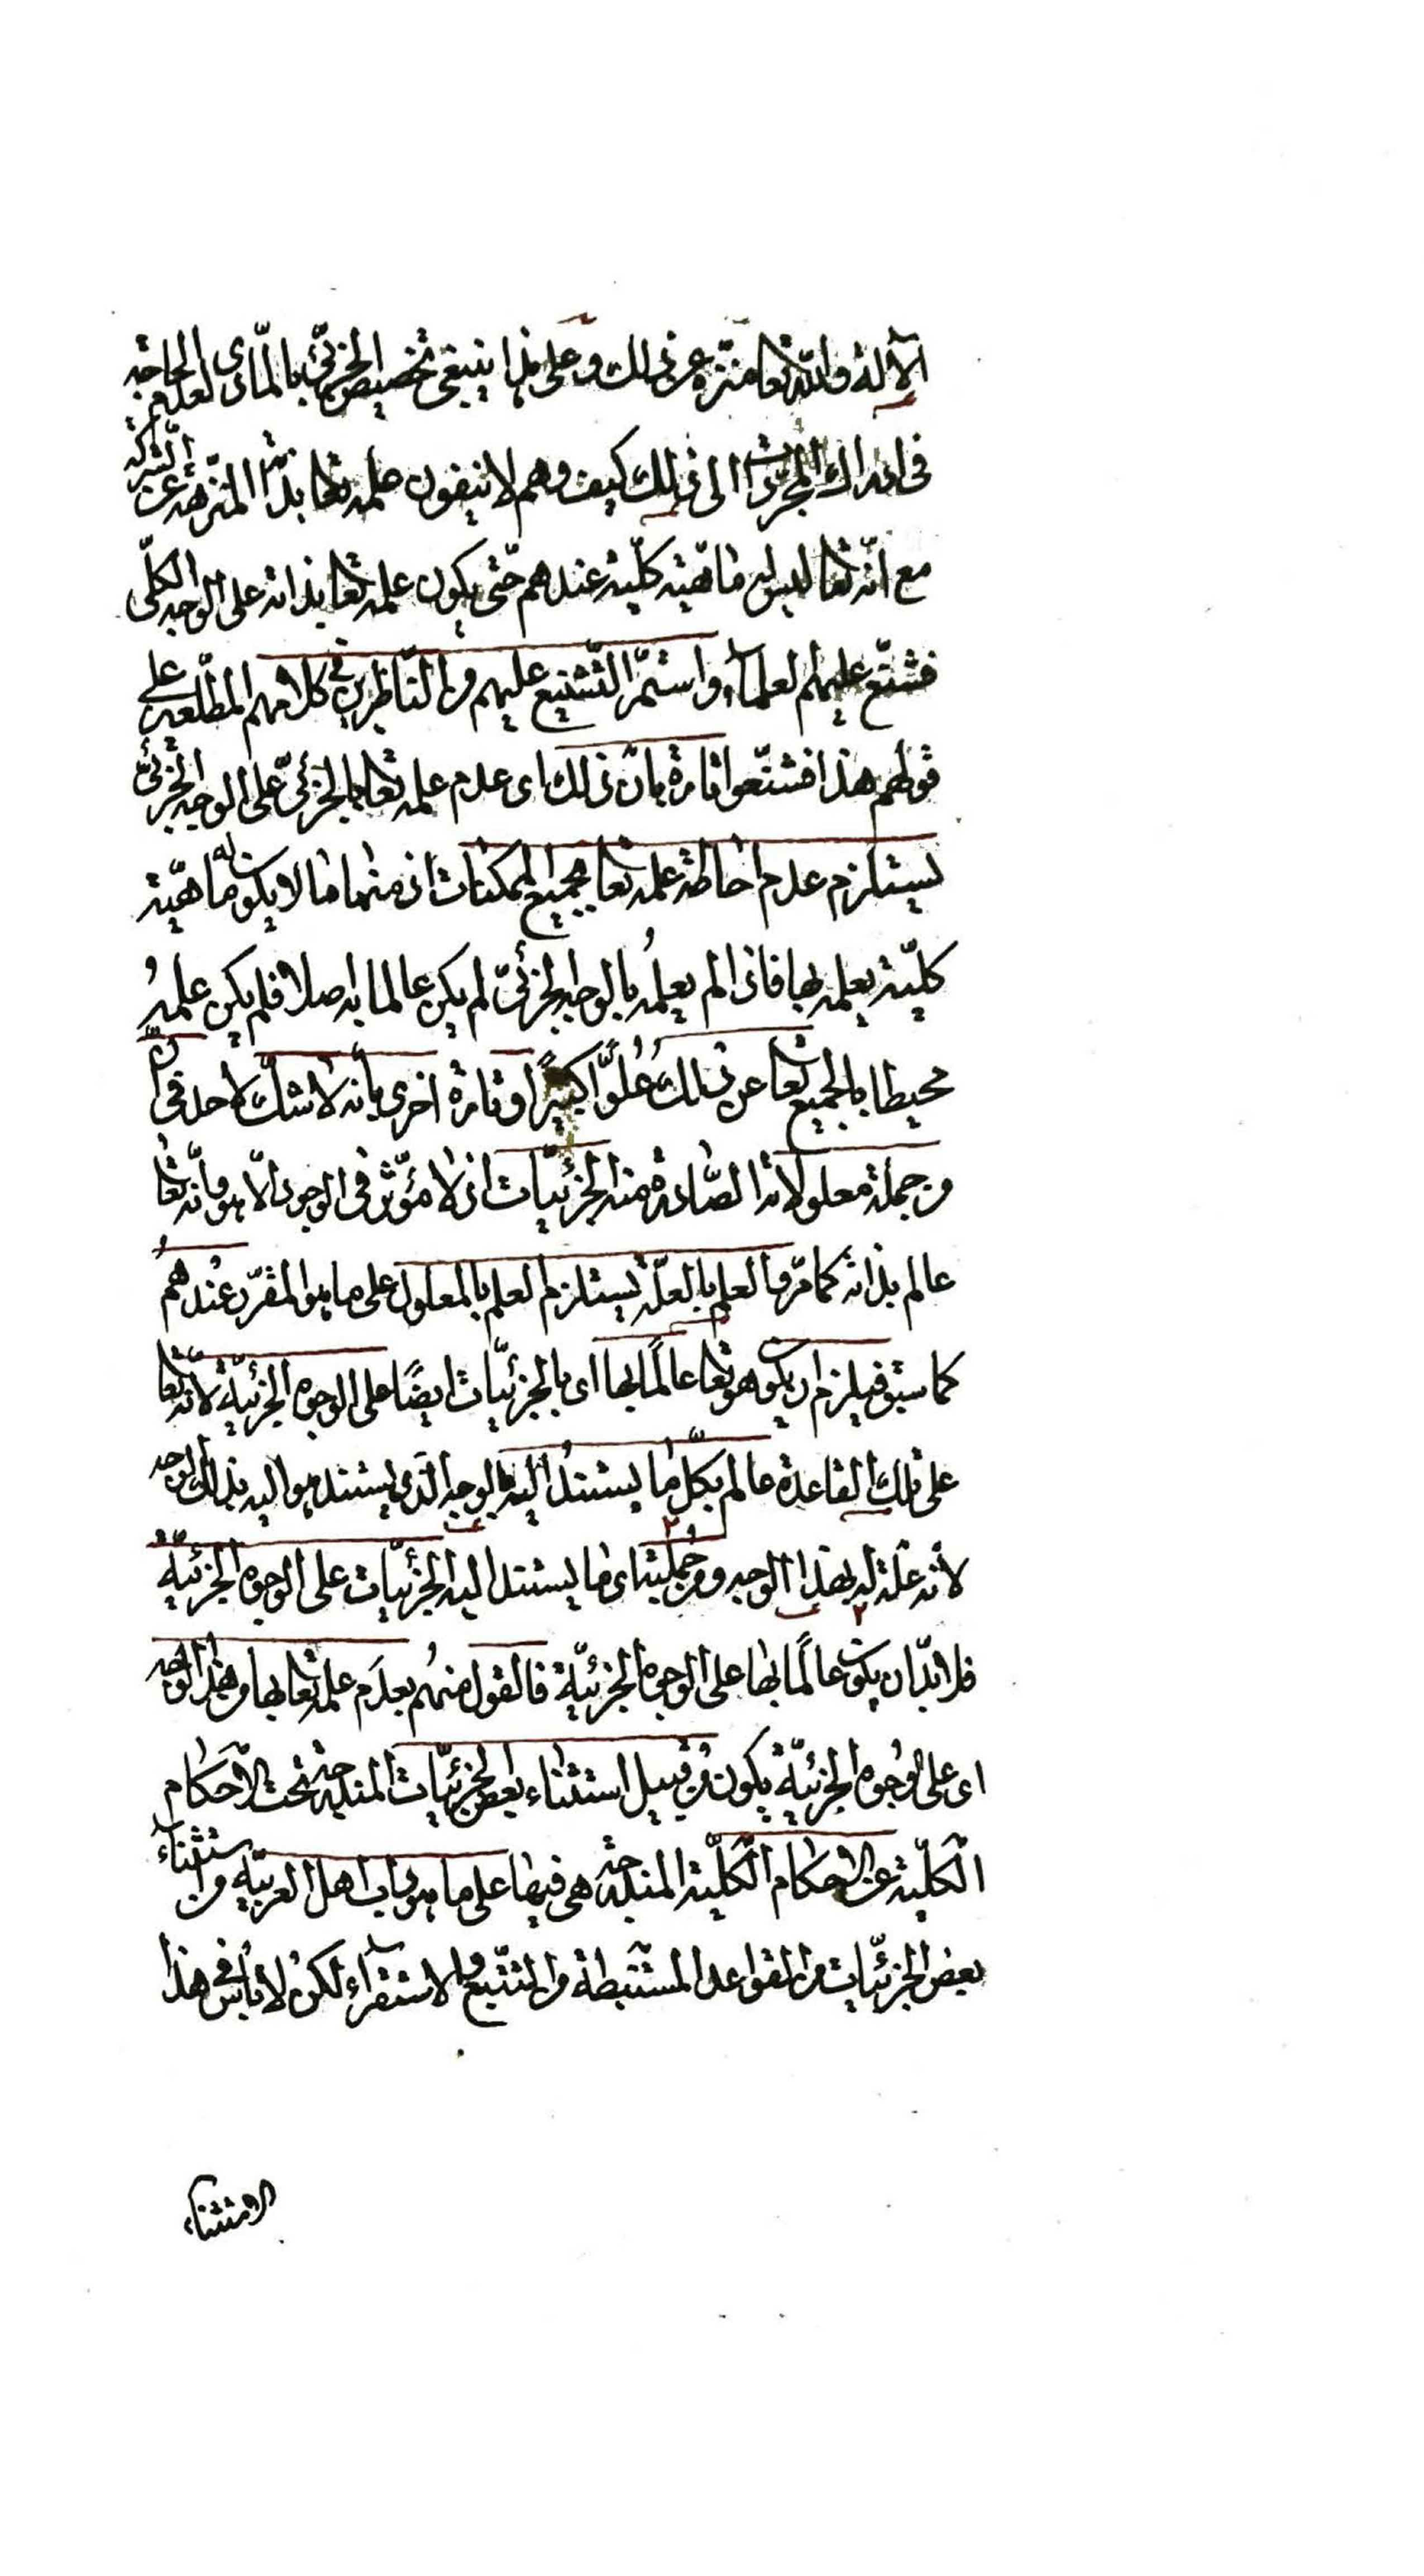 الآلة والله تعا منزه عن ذلك وعلى هذا ينبغى تخصيص الجزئى بالمادى لعدم الحاجة
فى ادراك المجردات الى ذلك كيف وهم لا ينفون علمه تعا بذاته المنزهة عن الشركة
مع انّه تعا ليس له ماهيّة كلّية عندهم حتّى يكون علمه تعا بذاته على الوجه الكلّى
فشنّع عليهم العلماء واستمرّ التّشنيع عليهم من النّاظرين فى كلامهم المطلعين على
قولهم هذا فشنّعوا تارة بانّ ذلك اى عدم علمه تعا بالجزئىّ على الوجه الجزئىّ
يستلزم عدم احاطة علمه تعا بجميع الممكنات اذ منها ما لا يكون له ماهيّة
كليّة يعلمه بها فاذا لم يعلمه بالوجه الجزئىّ لم يكن عالما به اصلا فلم يكن علمهُ
محيطا بالجميع تعا عن ذلك عُلُوًّا كبيرًا وتارة اخرى بأنه لا شكّ لاحد فى انّ
من جملة معلولاته الصّادرة منه الجزئيّات اذ لا مؤثّر فى الوجود الّا هو وانّه تعا
عالم بذاته كما مرّ والعلم بالعلّة يستلزم العلم بالمعلول على ما هو المقرّر عندهم
كما سبق فيلزم ان يكون هو تعا عالمًا بها اى بالجزئيّات ايضًا على الوجوه الجزئيّة لانّه تعا
على تلك القاعدة عالم بكلّ ما يستند اليه بالوجه الّذى يستند هو اليه بذلك الوجه
لأنه علّة له بهذا الوجه ومن جملته اى ما يستند اليه الجزئيّات على الوجوه الجزئيّة
فلا بدّ ان يكون عالمًا بها على الوجوه الجزئيّة فالقول منهُم بعدَم علمه تعا بها من هذا الوجه
اى على الوجوه الجزئيّة يكون من قبيل استثناء بعض الجزئيّات المندرجة تحت الأحكام
الكلّية عن الاحكام الكلّية المندرجة هى فيها على ما هو داب اهل العربيّة من استثناء
بعض الجزئيّات من القواعد المستنبطة من التتبّع والاستقراء لكن لا بأس فى هذا
الاستثناء